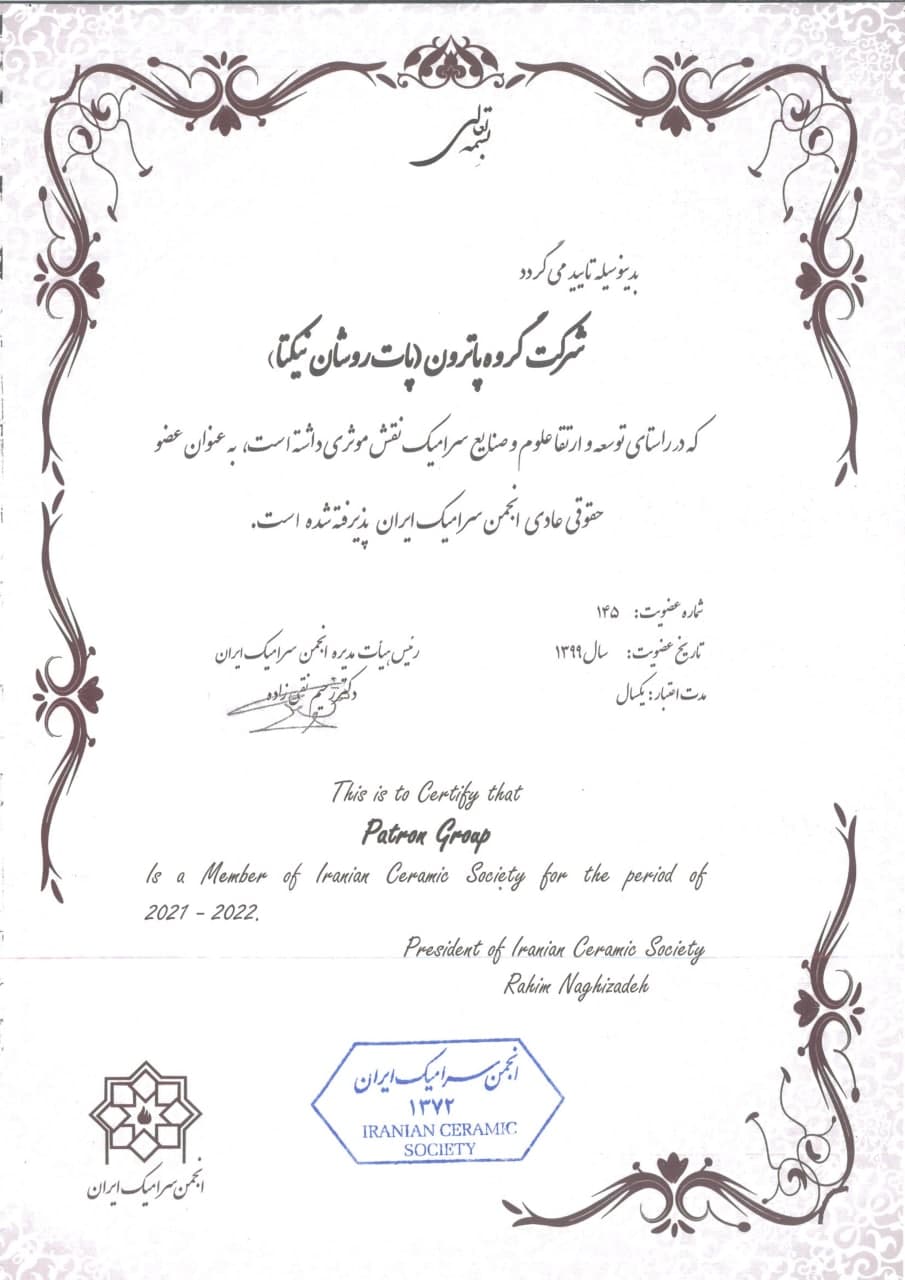 بسمه تعالی
بدینوسیله تایید می گردد
شرکت گروه پاترون (پات روشان نیکتا)
که در راستای توسعه و ارتقا علوم و صنایع سرامیک نقش موثری داشته است، به عنوان عضو
حقوقی عادی انجمن سرامیک ایران پذیرفته شده است.
شماره عضویت: ۱۴۵
تاریخ عضویت: سال ۱۳۹۹
مدت اعتبار: یکسال
رئیس هیأت مدیره انجمن سرامیک ایران
دکتر رحیم نقی زاده
This is to Certify that
Patron Group
Is a Member of Iranian Ceramic Society for the period of
2021 - 2022.
President of Iranian Ceramic Society
Rahim Naghizadeh
انجمن سرامیک ایران
۱۳۷۲
IRANIAN CERAMIC
SOCIETY
انجمن سرامیک ایران